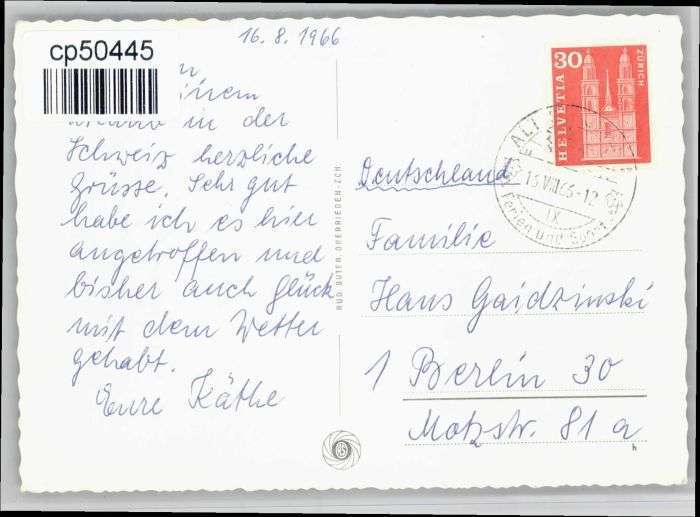 cp50445
16. 8. 1966
in der
Schweiz herzliche
Grüsse. Sehr gut
habe ich es hier
angetroffen und
bisher auch Glück
mit dem Wetter
gehabt.
Eure Käthe
RUD. SUTER, OBERRIEDEN-ZCH.
30
HELVETIA
ZÜRICH
16.VIII.66-12
IX
Ferien und Sport
Deutschland
Familie
Hans Gaidzinski
1 Berlin 30
Motzstr. 81 a
h